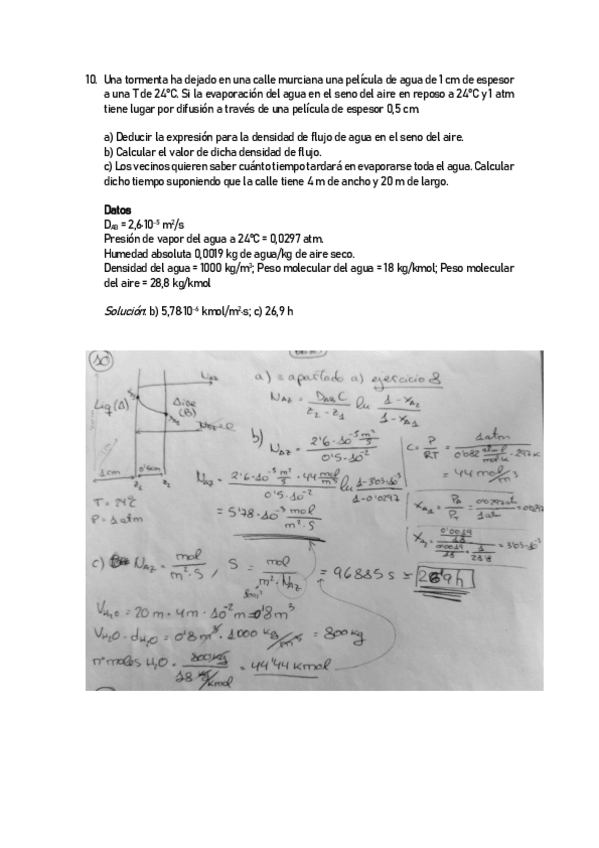 10. Una tormenta ha dejado en una calle murciana una película de agua de 1 cm de espesor
a una T de 24ºC. Si la evaporación del agua en el seno del aire en reposo a 24ºC y 1 atm
tiene lugar por difusión a través de una película de espesor 0,5 cm
a) Deducir la expresión para la densidad de flujo de agua en el seno del aire.
b) Calcular el valor de dicha densidad de flujo.
c) Los vecinos quieren saber cuánto tiempo tardará en evaporarse toda el agua. Calcular
dicho tiempo suponiendo que la calle tiene 4 m de ancho y 20 m de largo.
Datos
D_AB = 2,6·10⁻⁵ m²/s
Presión de vapor del agua a 24ºC = 0,0297 atm.
Humedad absoluta 0,0019 kg de agua/kg de aire seco.
Densidad del agua = 1000 kg/m³; Peso molecular del agua = 18 kg/kmol; Peso molecular
del aire = 28,8 kg/kmol
Solución: b) 5,78·10⁻⁶ kmol/m²·s; c) 26,9 h
10
N_AZ
Liq (A)
Aire
(B)
1 cm
0'5cm
z₁ z₂
T = 24ºC
P = 1 atm
a) = apartado a) ejercicio 8
N_AZ = D_AB C / z₂ - z₁ ln 1 - x_A2 / 1 - x_A1
b) N_AZ = 2'6·10⁻⁵ m²/s / 0'5·10⁻²
C = P/RT = 1 atm / 0'082 · 297 K
= 41 mol/m³
N_AZ = 2'6·10⁻⁵ m²/s · 41 mol/m³ / 0'5·10⁻² ln 1-3'03·10⁻³ / 1-0'0297
= 5'78·10⁻³ mol / m²·s
c) N_AZ = mol / m²·s , S = mol / m²·N_AZ = 96885 s = 26'9 h
V_H₂O = 20 m · 4m · 10⁻² m = 0'8 m³
V_H₂O · d_H₂O = 0'8 m³ · 1000 kg/m³ = 800 kg
nº moles H₂O = 800 kg / 18 kg/kmol = 44'44 kmol